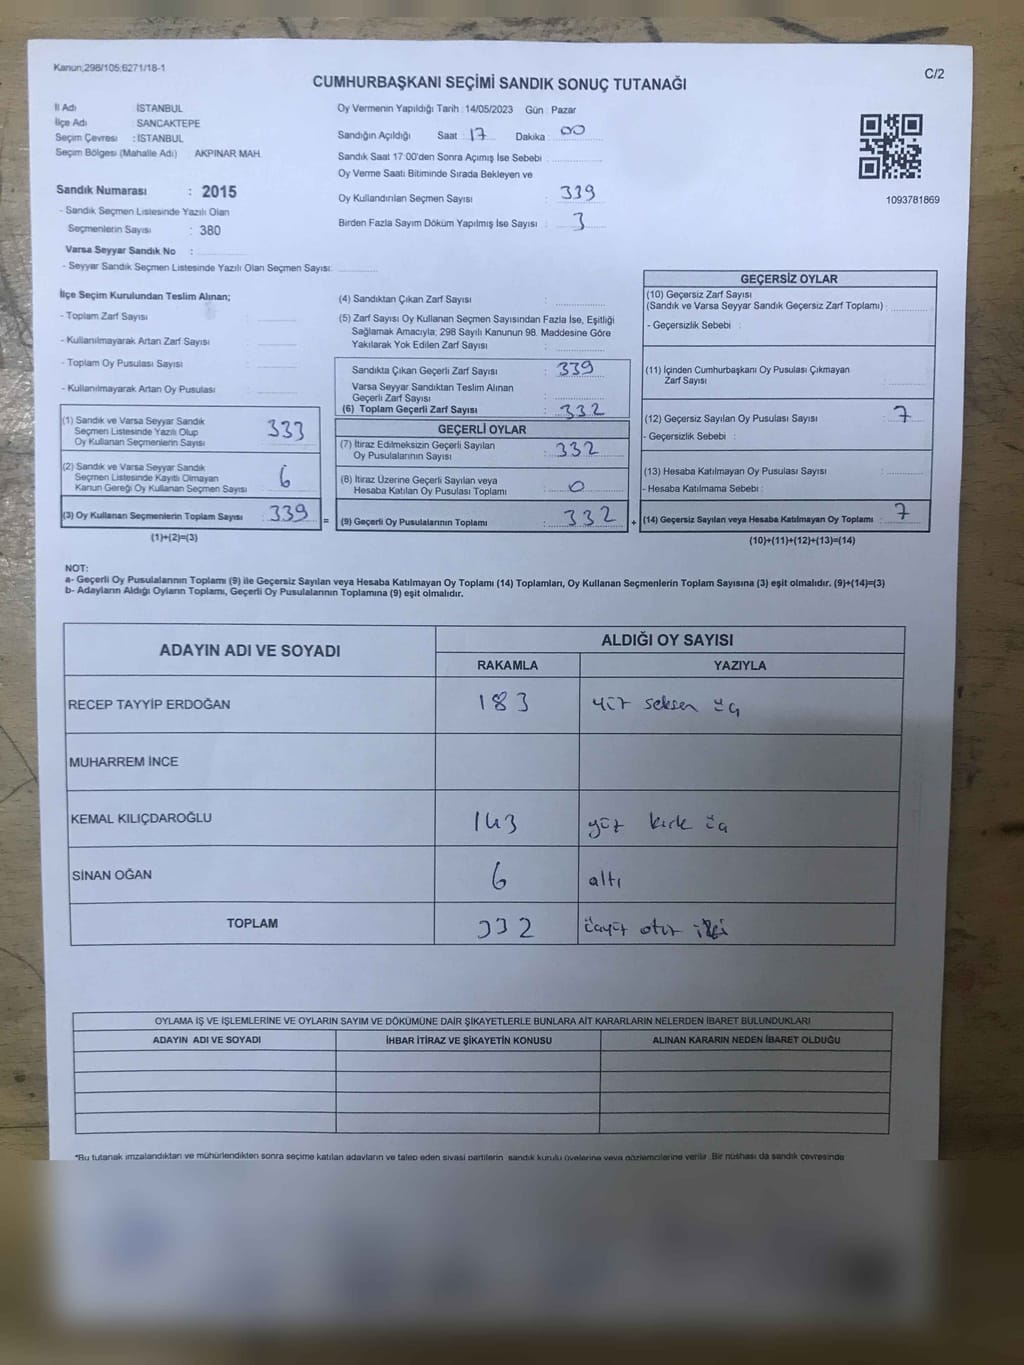 Kanun;298/105;6271/18-1
C/2
CUMHURBAŞKANI SEÇİMİ SANDIK SONUÇ TUTANAĞI
İl Adı : İSTANBUL
İlçe Adı : SANCAKTEPE
Seçim Çevresi : İSTANBUL
Seçim Bölgesi (Mahalle Adı) : AKPINAR MAH.
Oy Vermenin Yapıldığı Tarih : 14/05/2023 Gün : Pazar
Sandığın Açıldığı Saat : 17 Dakika : 00
Sandık Saat 17:00'den Sonra Açımış İse Sebebi :
Oy Verme Saati Bitiminde Sırada Bekleyen ve
Oy Kullandırılan Seçmen Sayısı : 339
Birden Fazla Sayım Döküm Yapılmış İse Sayısı : 3
1093781869
Sandık Numarası : 2015
- Sandık Seçmen Listesinde Yazılı Olan
Seçmenlerin Sayısı : 380
Varsa Seyyar Sandık No :
- Seyyar Sandık Seçmen Listesinde Yazılı Olan Seçmen Sayısı:
İlçe Seçim Kurulundan Teslim Alınan;
- Toplam Zarf Sayısı :
- Kullanılmayarak Artan Zarf Sayısı :
- Toplam Oy Pusulası Sayısı :
- Kullanılmayarak Artan Oy Pusulası :
(1) Sandık ve Varsa Seyyar Sandık
Seçmen Listesinde Yazılı Olup
Oy Kullanan Seçmenlerin Sayısı : 333
(2) Sandık ve Varsa Seyyar Sandık
Seçmen Listesinde Kayıtlı Olmayan
Kanun Gereği Oy Kullanan Seçmen Sayısı : 6
(3) Oy Kullanan Seçmenlerin Toplam Sayısı : 339
(1)+(2)=(3)
(4) Sandıktan Çıkan Zarf Sayısı :
(5) Zarf Sayısı Oy Kullanan Seçmen Sayısından Fazla İse, Eşitliği
Sağlamak Amacıyla; 298 Sayılı Kanunun 98. Maddesine Göre
Yakılarak Yok Edilen Zarf Sayısı :
Sandıkta Çıkan Geçerli Zarf Sayısı : 339
Varsa Seyyar Sandıktan Teslim Alınan
Geçerli Zarf Sayısı :
(6) Toplam Geçerli Zarf Sayısı : 332
GEÇERLİ OYLAR
(7) İtiraz Edilmeksizin Geçerli Sayılan
Oy Pusulalarının Sayısı : 332
(8) İtiraz Üzerine Geçerli Sayılan veya
Hesaba Katılan Oy Pusulası Toplamı : 0
= (9) Geçerli Oy Pusulalarının Toplamı : 332 +
GEÇERSİZ OYLAR
(10) Geçersiz Zarf Sayısı
(Sandık ve Varsa Seyyar Sandık Geçersiz Zarf Toplamı) :
- Geçersizlik Sebebi :
(11) İçinden Cumhurbaşkanı Oy Pusulası Çıkmayan
Zarf Sayısı :
(12) Geçersiz Sayılan Oy Pusulası Sayısı : 7
- Geçersizlik Sebebi :
(13) Hesaba Katılmayan Oy Pusulası Sayısı :
- Hesaba Katılmama Sebebi :
(14) Geçersiz Sayılan veya Hesaba Katılmayan Oy Toplamı : 7
(10)+(11)+(12)+(13)=(14)
NOT:
a- Geçerli Oy Pusulalarının Toplamı (9) ile Geçersiz Sayılan veya Hesaba Katılmayan Oy Toplamı (14) Toplamları, Oy Kullanan Seçmenlerin Toplam Sayısına (3) eşit olmalıdır. (9)+(14)=(3)
b- Adayların Aldığı Oyların Toplamı, Geçerli Oy Pusulalarının Toplamına (9) eşit olmalıdır.
ADAYIN ADI VE SOYADI ALDIĞI OY SAYISI
RAKAMLA YAZIYLA
RECEP TAYYİP ERDOĞAN 183 yüz seksen üç
MUHARREM İNCE
KEMAL KILIÇDAROĞLU 143 yüz kırk üç
SİNAN OĞAN 6 altı
TOPLAM 332 üçyüz otuz iki
OYLAMA İŞ VE İŞLEMLERİNE VE OYLARIN SAYIM VE DÖKÜMÜNE DAİR ŞİKAYETLERLE BUNLARA AİT KARARLARIN NELERDEN İBARET BULUNDUKLARI
ADAYIN ADI VE SOYADI İHBAR İTİRAZ VE ŞİKAYETİN KONUSU ALINAN KARARIN NEDEN İBARET OLDUĞU
*Bu tutanak imzalandıktan ve mühürlendikten sonra seçime katılan adayların ve talep eden siyasi partilerin sandık kurulu üyelerine veya gözlemcilerine verilir. Bir nüshası da sandık çevresinde